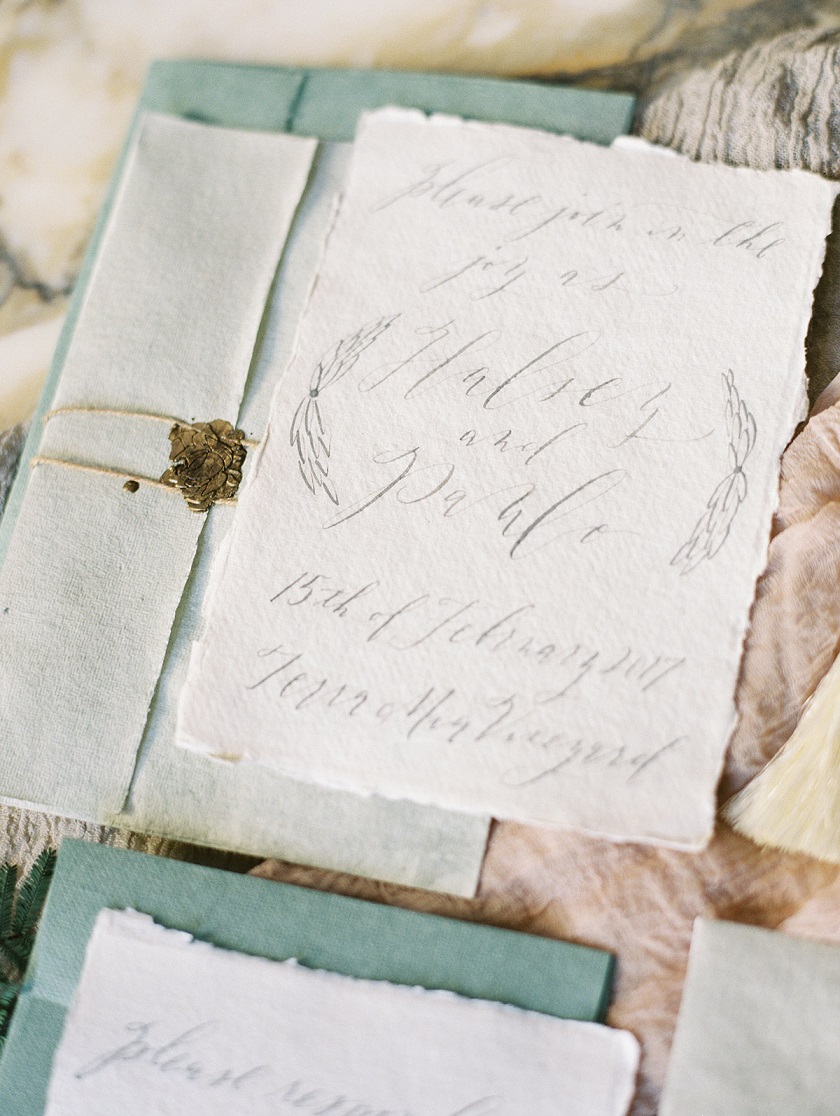 please join in the
joy as
Halsey
and
Pablo
15th of February 2017
Terra Mia Vineyard
please